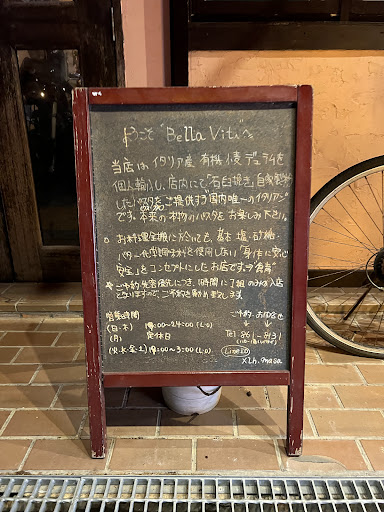 ようこそ "Bella Vita"へ
当店は、イタリア産 有機 デュラムを
個人輸入し、店内にて"石臼挽き"自家製粉
した パスタをご提供する国内唯一のイタリアン
です。本来の本物のパスタをお楽しみ下さい。
お料理全般に於いても、基本 塩・砂糖・
バター・化学調味料を使用しない"身体に安心
安全"をコンセプトにしたお店です。
ご予約 優先につき、1時間に1組のみの入店
となりますので、ご予約をお勧め致します。
営業時間
ご予約・お問合せ
(日・木) 18:00〜24:00 (L.O)
(月) 定休日
Tel 861-8131
(火・水・金・土) 18:00〜3:00 (L.O)